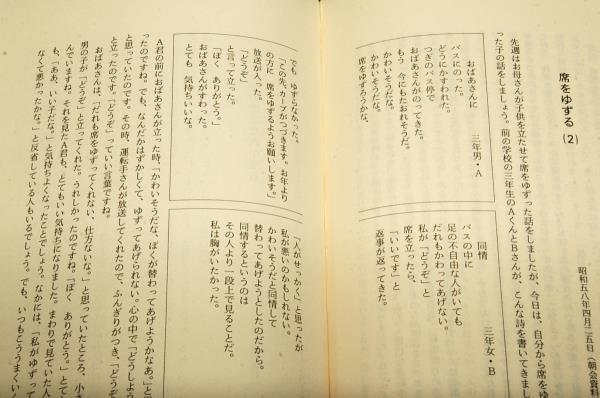 席をゆずる (2)
昭和五八年四月二五日(朝会資料
先週はお母さんが子供を立たせて席をゆずった話をしましたが、今日は、自分から席をゆ
った子の話をしましょう。前の学校の三年生のAくんとBさんが、こんな詩を書いてきまし
おばあさんに 三年男・A
バスにのった。
どうにかすわれた。
つぎのバス停で
おばあさんがのってきた。
もう 今にもたおれそうだ。
かわいそうだな。
かわいそうだな。
席をゆずろうかな、
でも ゆずらなかった。
「この先、カーブがつづきます。お年より
の方に 席をゆずるようお願いします。」
放送が入った。
「どうぞ」
と言って立った。
「ぼく ありがとう。」
おばあさんがすわった。
とても 気持ちいいな。
同情 三年女・B
バスの中に
足の不自由な人がいても
だれもかわってあげない。
私が「どうぞ」と
席を立ったら、
「いいです」と
返事が返ってきた。
「人がせっかく」と思ったが
私が悪いのかもしれない。
かわいそうだと同情して
替わってあげようとしたのだから。
同情するというのは
その人より一段上で見ることだ。
私は胸がいたかった。
A君の前におばあさんが立った時、「かわいそうだな、ぼくが替わってあげようかなあ。」と
ったのですね。でも、なんだかはずかしくて、ゆずってあげられない。心の中で「どうしよう
と思っていたのです。その時、運転手さんが放送してくれたので、ふんぎりがつき、「どうぞ
と立ったのです。「どうぞ」っていい言葉ですね。
おばあさんは、「だれも席をゆずってくれない、仕方ないな。」と思っていたところ、小さ
男の子が「どうぞ」と立ってくれた。うれしかったのですね。「ぼく ありがとう。」とて
んでいますね。それを見たA君も、とてもいい気持ちでなりました。まわりで見ていた人
も、「ああ、いい子だな。」と気持ちよくなったことでしょう。なかには、「私がゆずって
なくて悪かったかな。」と反省している人もいるでしょう。でも、いつもこううまくい